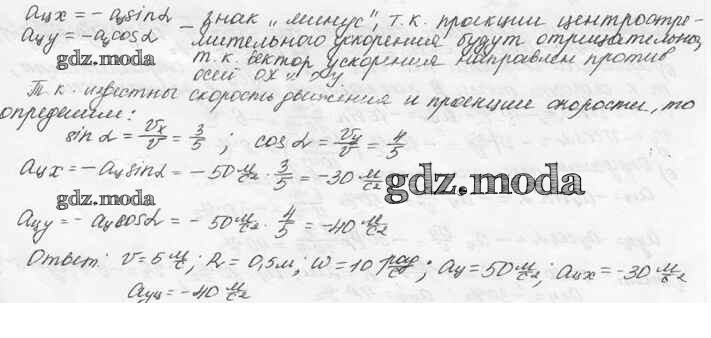 aцx = -aцsinα – знак „минус", т.к. проекции центростре-
aцy = -aцcosα мительного ускорения будут отрицательны,
gdz.moda т.к. вектор ускорения направлен против
осей ox и oy
Т.к. известны скорость движения и проекции скорости, то
определим:
sin α = Vx/V = 3/5 ; cos α = Vy/V = 4/5
aцx = -aцsinα = -50 м/с² · 3/5 = -30 м/с²
gdz.moda
gdz.moda
aцy = -aцcosα = -50 м/с² · 4/5 = -40 м/с²
Ответ: V = 5 м/с; R = 0,5м; ω = 10 рад/с; aц = 50 м/с²; aцx = -30 м/с²
aцy = -40 м/с²